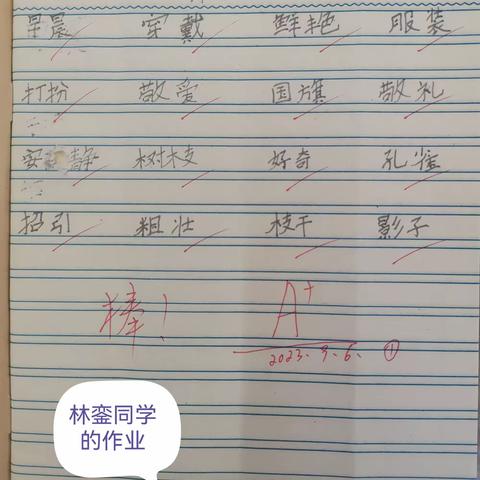 早晨 穿戴 鲜艳 服装
打扮 敬爱 国旗 敬礼
安静 树枝 好奇 孔雀
招引 粗壮 枝干 影子
棒! A+
2023.9.6. ①
林銮同学
的作业